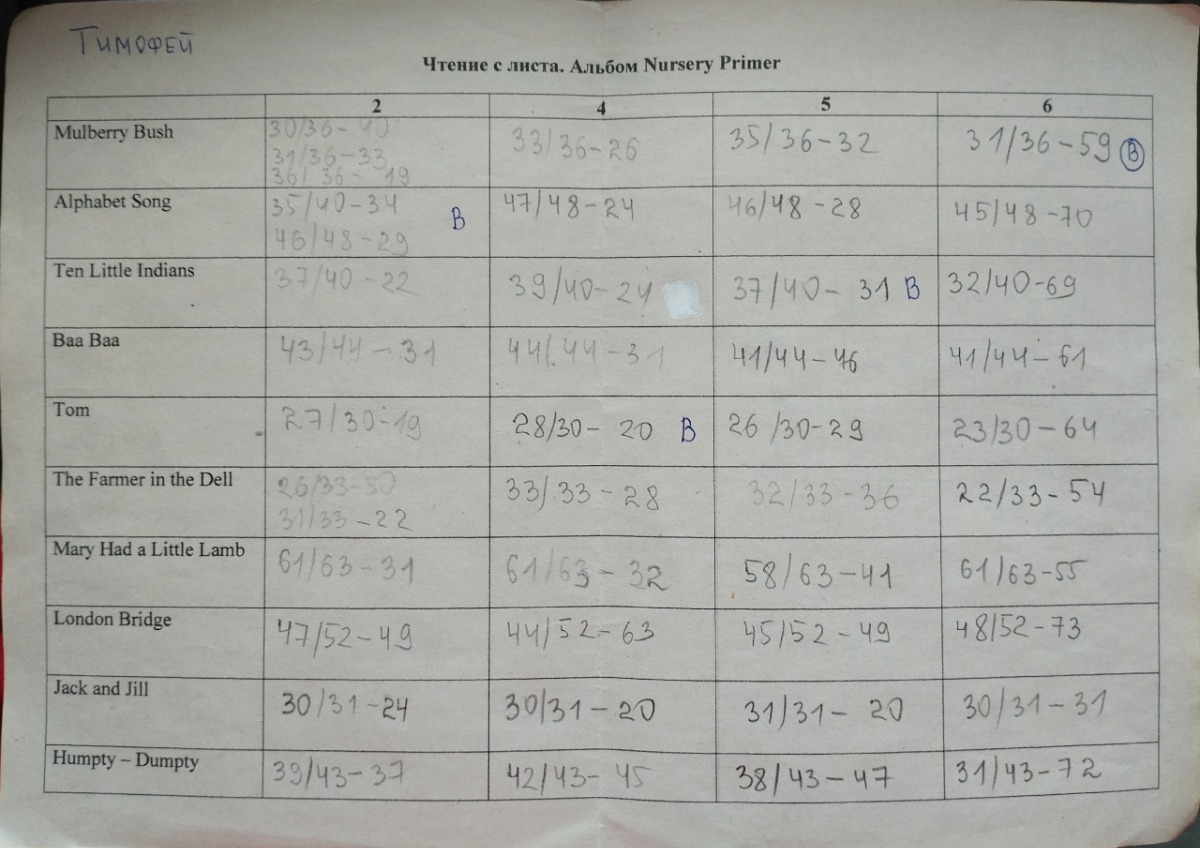 Тимофей
Чтение с листа. Альбом Nursery Primer
2 4 5 6
Mulberry Bush 30/36-40 33/36-26 35/36-32 31/36-59 В
31/36-33
36/36-19
Alphabet Song 35/40-34 В 47/48-24 46/48-28 45/48-70
46/48-29
Ten Little Indians 37/40-22 39/40-24 37/40-31 В 32/40-69
Baa Baa 43/44-31 44/44-31 41/44-46 41/44-61
Tom 27/30-19 28/30-20 В 26/30-29 23/30-64
The Farmer in the Dell 26/33-50 33/33-28 32/33-36 22/33-54
31/33-22
Mary Had a Little Lamb 61/63-31 61/63-32 58/63-41 61/63-55
London Bridge 47/52-49 44/52-63 45/52-49 48/52-73
Jack and Jill 30/31-24 30/31-20 31/31-20 30/31-31
Humpty – Dumpty 39/43-37 42/43-45 38/43-47 31/43-72